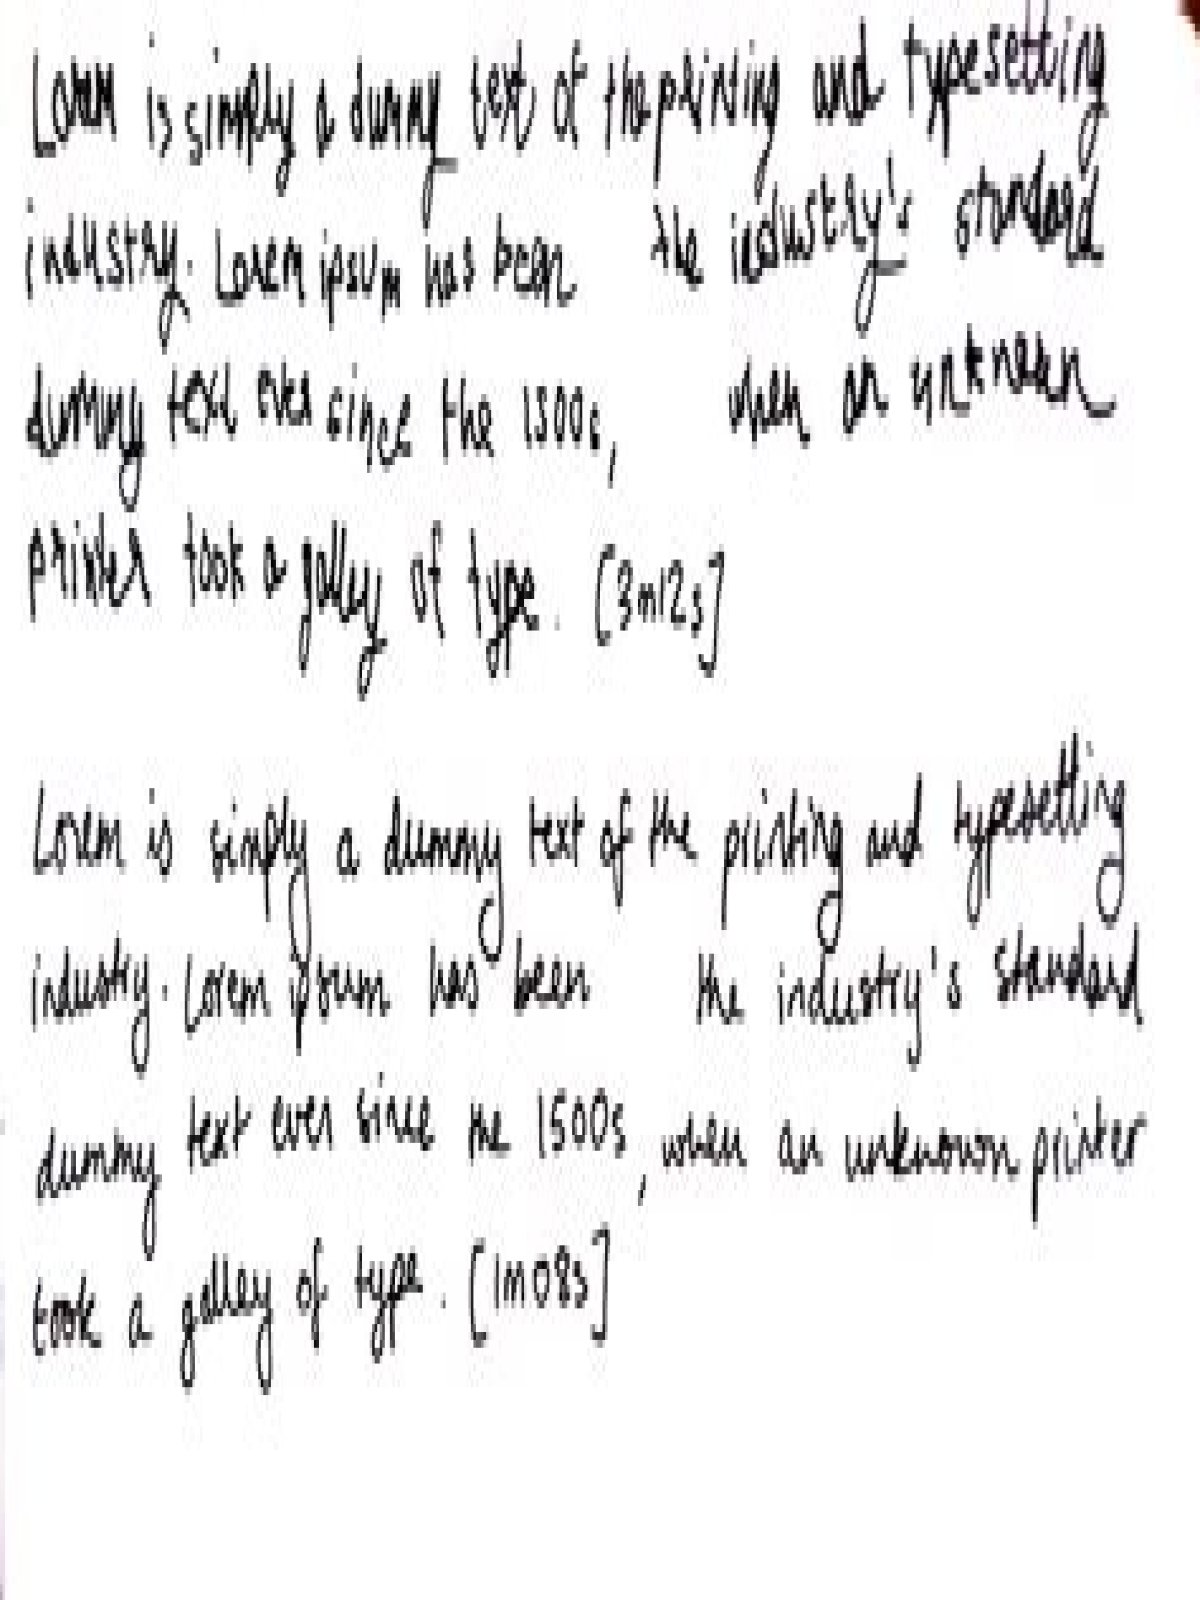 Lorem is simply a dummy text of the printing and typesetting
industry. Lorem ipsum has been the industry's standard
dummy text ever since the 1500s, when an unknown
printer took a galley of type. [3m12s]
Lorem is simply a dummy text of the printing and typesetting
industry. Lorem ipsum has been the industry's standard
dummy text ever since the 1500s, when an unknown printer
took a galley of type. [1m08s]